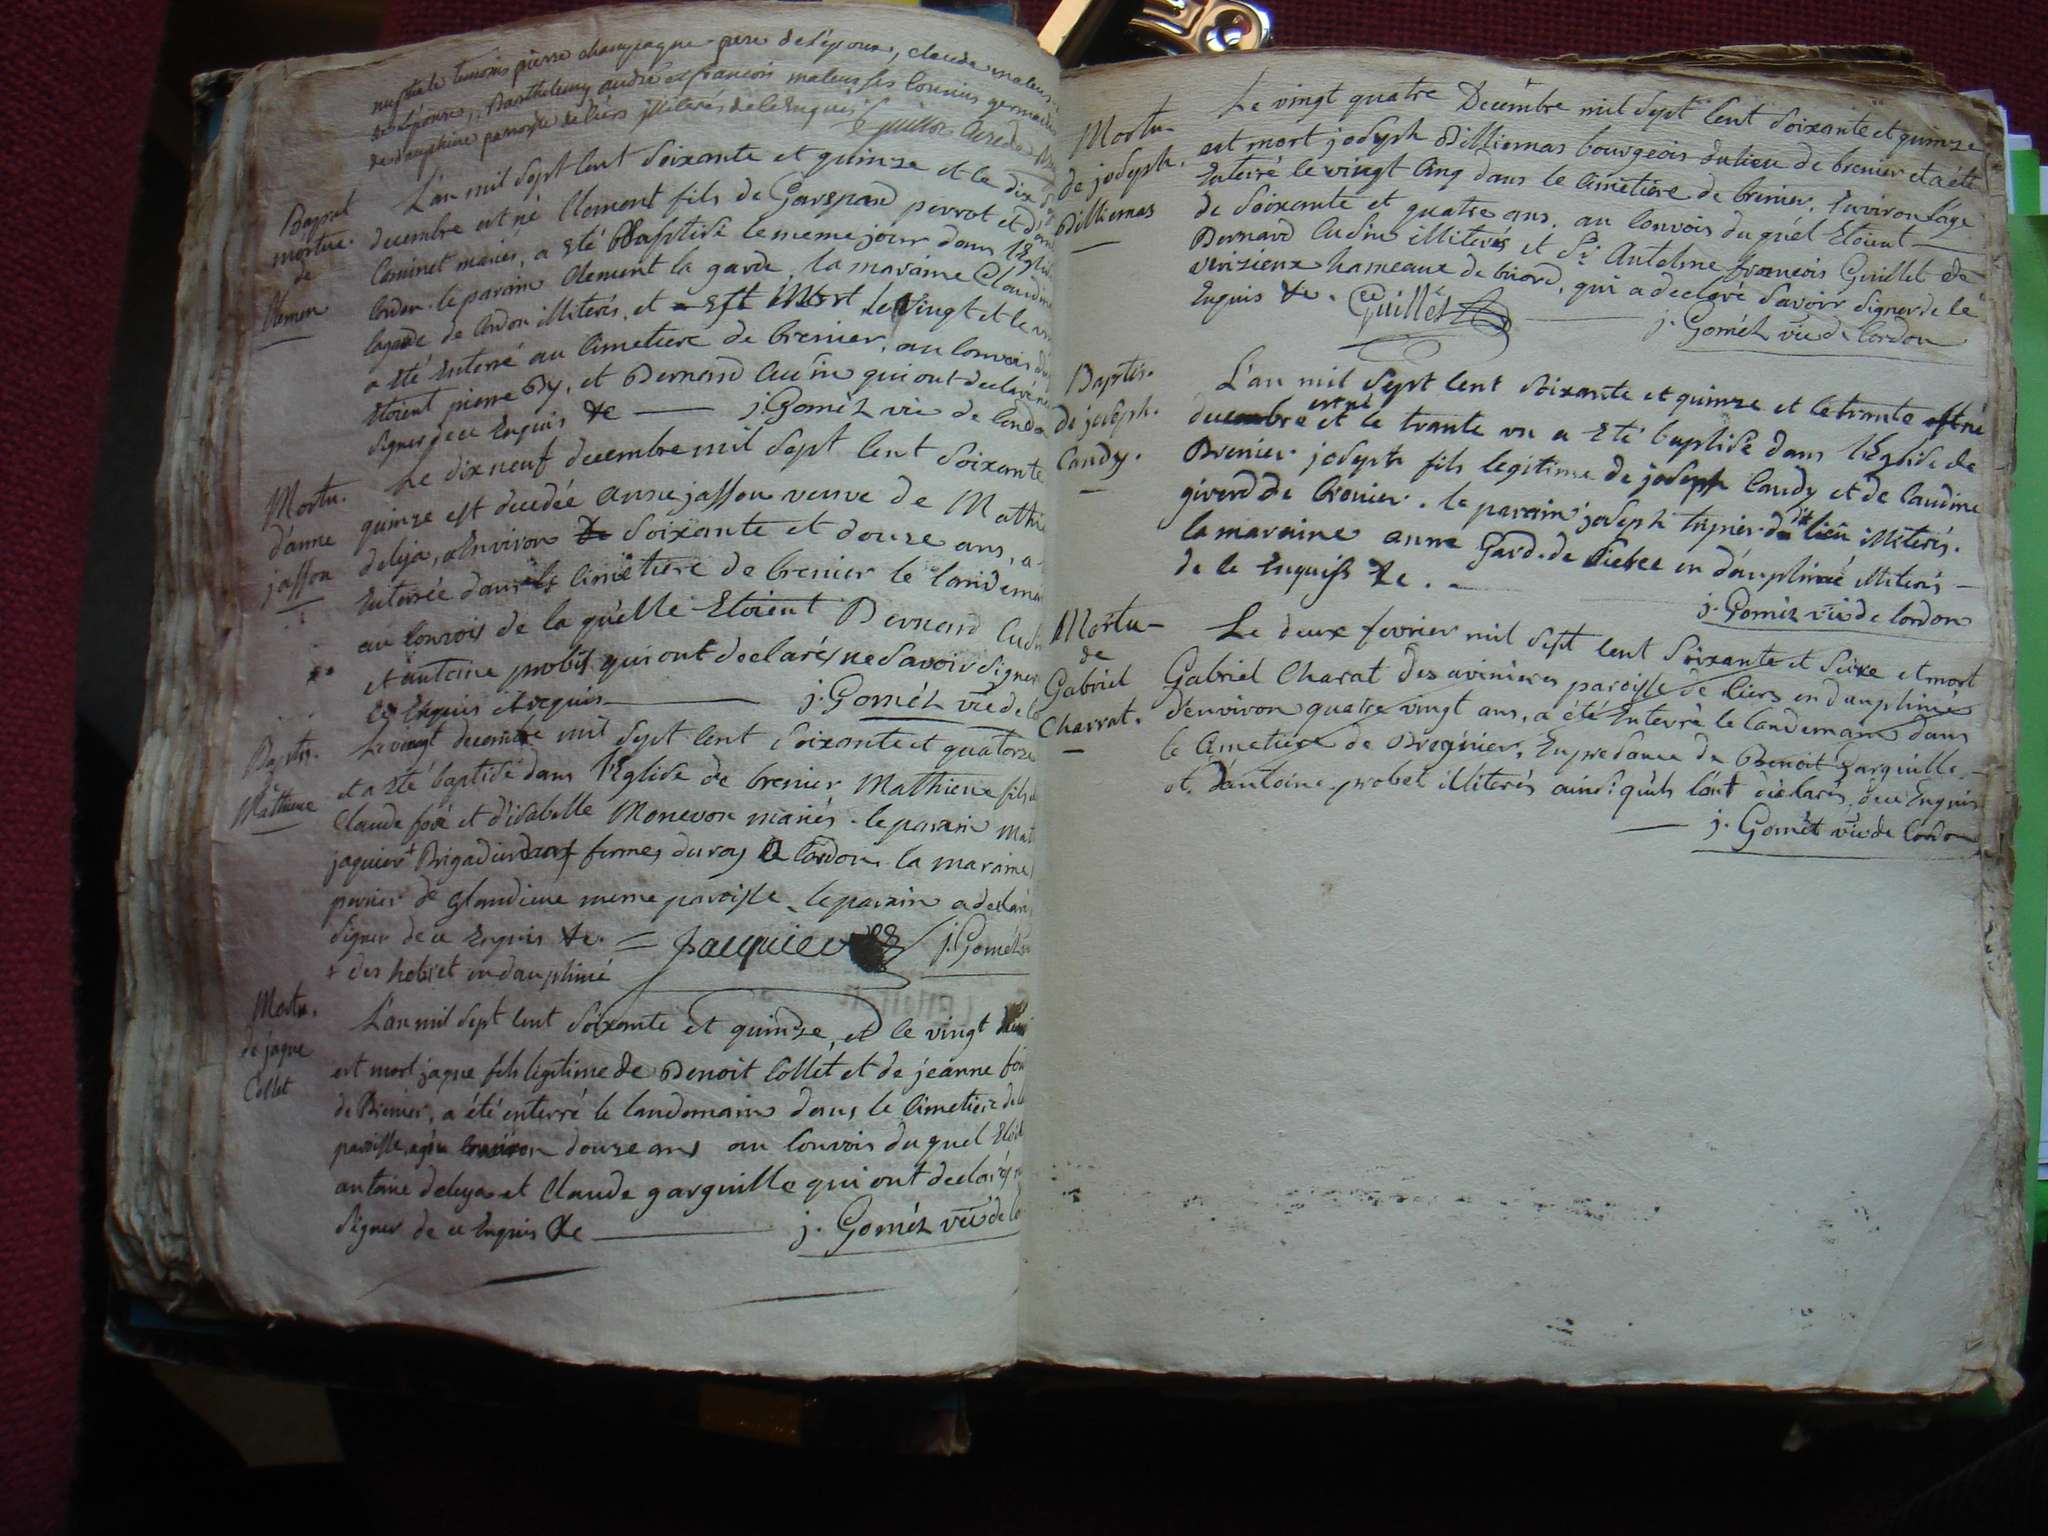 nuptiale temoins pierre champagne pere de l'epoux, claude mateus
de l'epouse, Barthelemy andré et francois mateus ses cousins germains
de dauphine paroisse de liers illiterés de le enquis
guillot curé de
Bapt et
mortue.
de
Clemen
L'an mil sept cent soixante et quinze et le dix
decembre est né Clement fils de Gaspard perrot et d'an
Cominet mariés, a été Baptisé le meme jour dans l'Eglise
Cordon. le parain Clement la garde, la maraine Claudine
lagarde de Cordon illiterés, et est Mort le vingt et le vn
a été Enterré au Cimetiere de brenier, au Convois du
Etoient pierre Dy, et Bernard Cusin qui ont declaré ne
signer de ce Enquis &c j. Goméz vic de Cordon
Mortu.
d'anne
jasson
Le dix neuf decembre mil sept cent soixante
quinze est decedée anne jasson veuve de Mathieu
deleja, a Environ soixante et douze ans, a
Enterrée dans le Cimetiere de brenier le landemain
au Convois de la quelle Etoient Bernard Cusin
et antoine probet qui ont declarés ne savoir signer
de Enquis et requis j. Goméz vic de Co
Baptis.
de
Mathieu
Le vingt decembre mil sept cent soixante et quatorze
et a été baptisé dans l'Eglise de brenier Mathieu fils de
Claude foré et d'isabelle Monevon mariés. le parain Mat
jaquier + Brigadier dans fermes du roy a Cordon. la maraine
perrier de glandieu meme paroisse. le parain a declaré
signer de ce Enquis &c. Jacquier j. Goméz
+ des hobiet en dauphiné
Mortu.
de jaque
Collet
L'an mil sept cent soixante et quinze, et le vingt
est mort jaque fils légitime de Benoit Collet et de jeanne
de Brenier, a été enterré le landemain dans le Cimetiere de la
paroisse, agé environ douze ans au Convois du quel Etoi
antoine deleja et Claude garguille qui ont declarés ne
signer de ce Enquis &c j. Goméz vic de Co
Mortu-
de joseph.
Billiemas
Le vingt quatre Decembre mil sept cent soixante et quinze
est mort joseph Billiemas bourgeois du lieu de brenier et a été
Enterré le vingt Cinq dans le Cimetiere de brenier. Environ l'age
de soixante et quatre ans. au Convois du quel Etoient
Bernard Cusin illiterés et Sr. Antelme francois Guillet de
virizieux hameaux de briord, qui a declaré savoir signer de le
Enquis &c. Guillet j. Goméz vic de Cordon
Baptis.
de joseph.
Candy.
L'an mil sept cent soixante et quinze et le trante est né
decembre est né et le trante vn a été baptisé dans l'Eglise de
Brenier joseph fils legitime de joseph Candy et de Claudine
giverd de brenier. le parain joseph tupier du dit lieu illiterés.
la maraine anne Gard. de liebee en dauphiné illiterés
de le Enquis &c.
j. Goméz vic de Cordon
Mortu-
de
Gabriel
Charrat.
Le deux fevrier mil sept cent soixante et seize et mort
Gabriel Charat des avinieres paroisse de liers en dauphiné
d'environ quatre vingt ans, a été Enterré le landemain dans
le Cimetiere de Bregnier. En presance de Benoit garguille
et. d'antoine probet illiterés ainsi qu'ils l'ont déclarés de ce Enquis
j. Goméz vic de Cordon